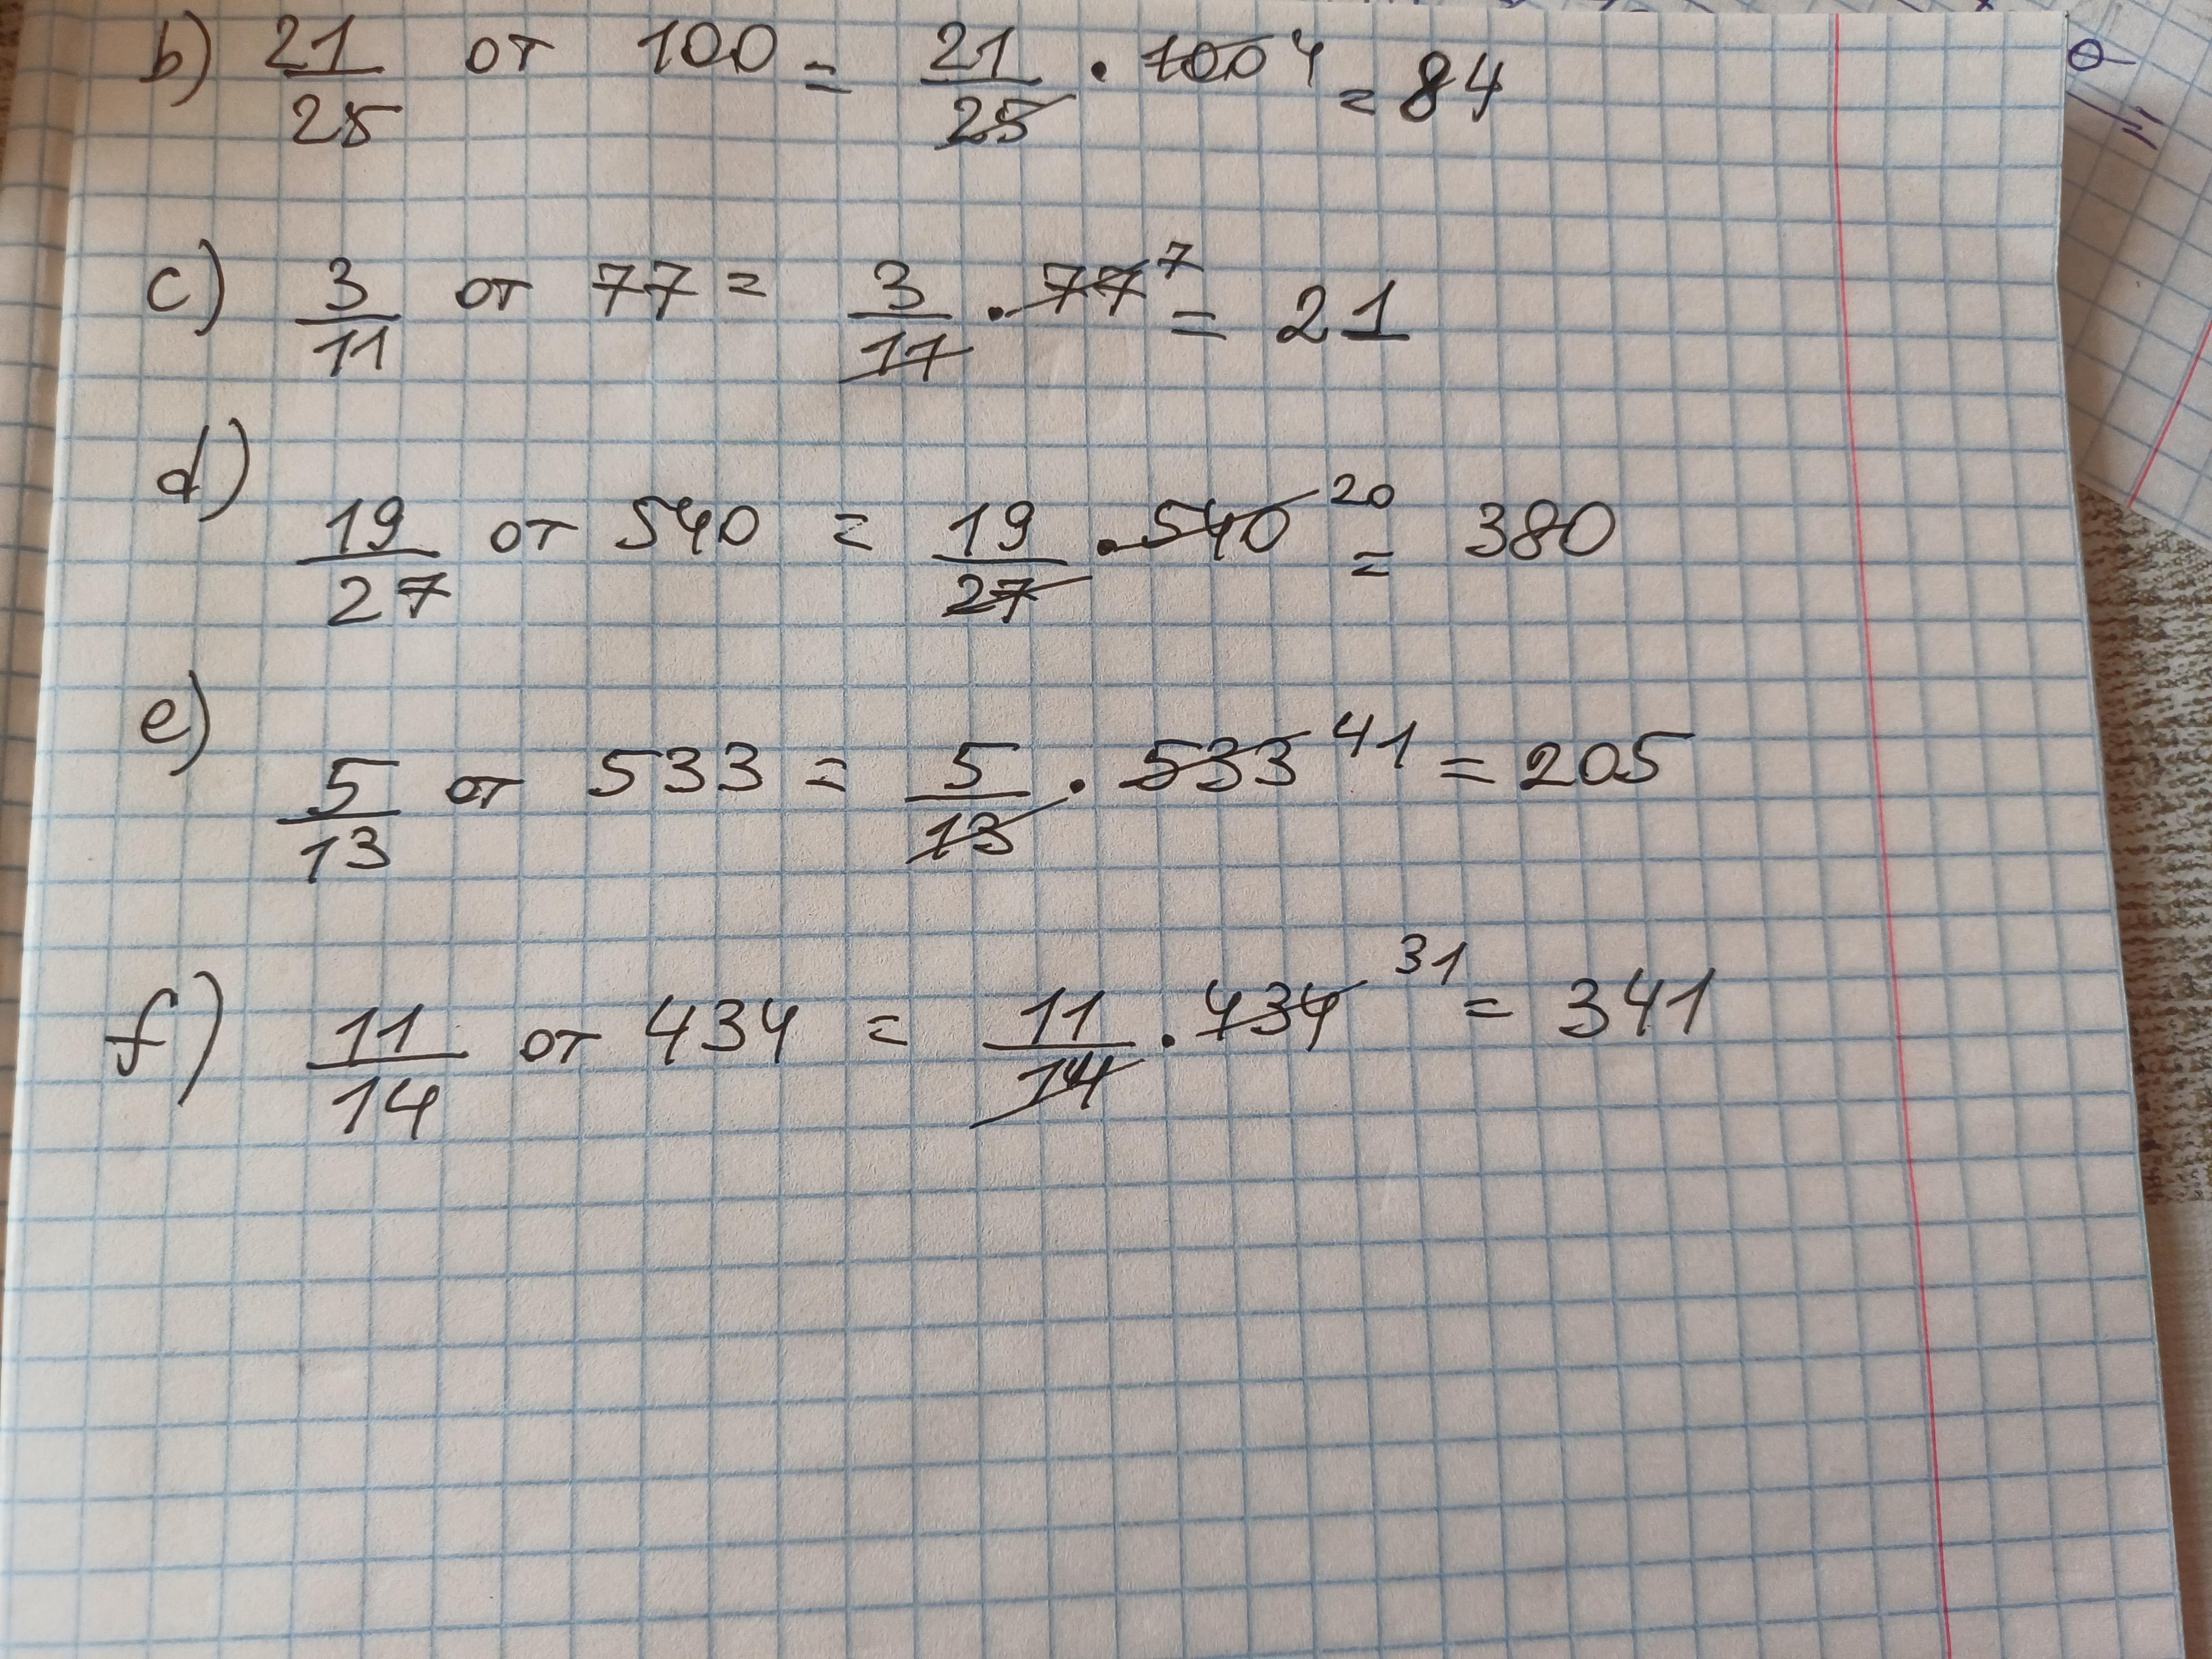 b) 21/25 от 100 = 21/25 · 100 4 = 84
c) 3/11 от 77 = 3/11 · 77 7 = 21
d) 19/27 от 540 = 19/27 · 540 20 = 380
e) 5/13 от 533 = 5/13 · 533 41 = 205
f) 11/14 от 434 = 11/14 · 434 31 = 341